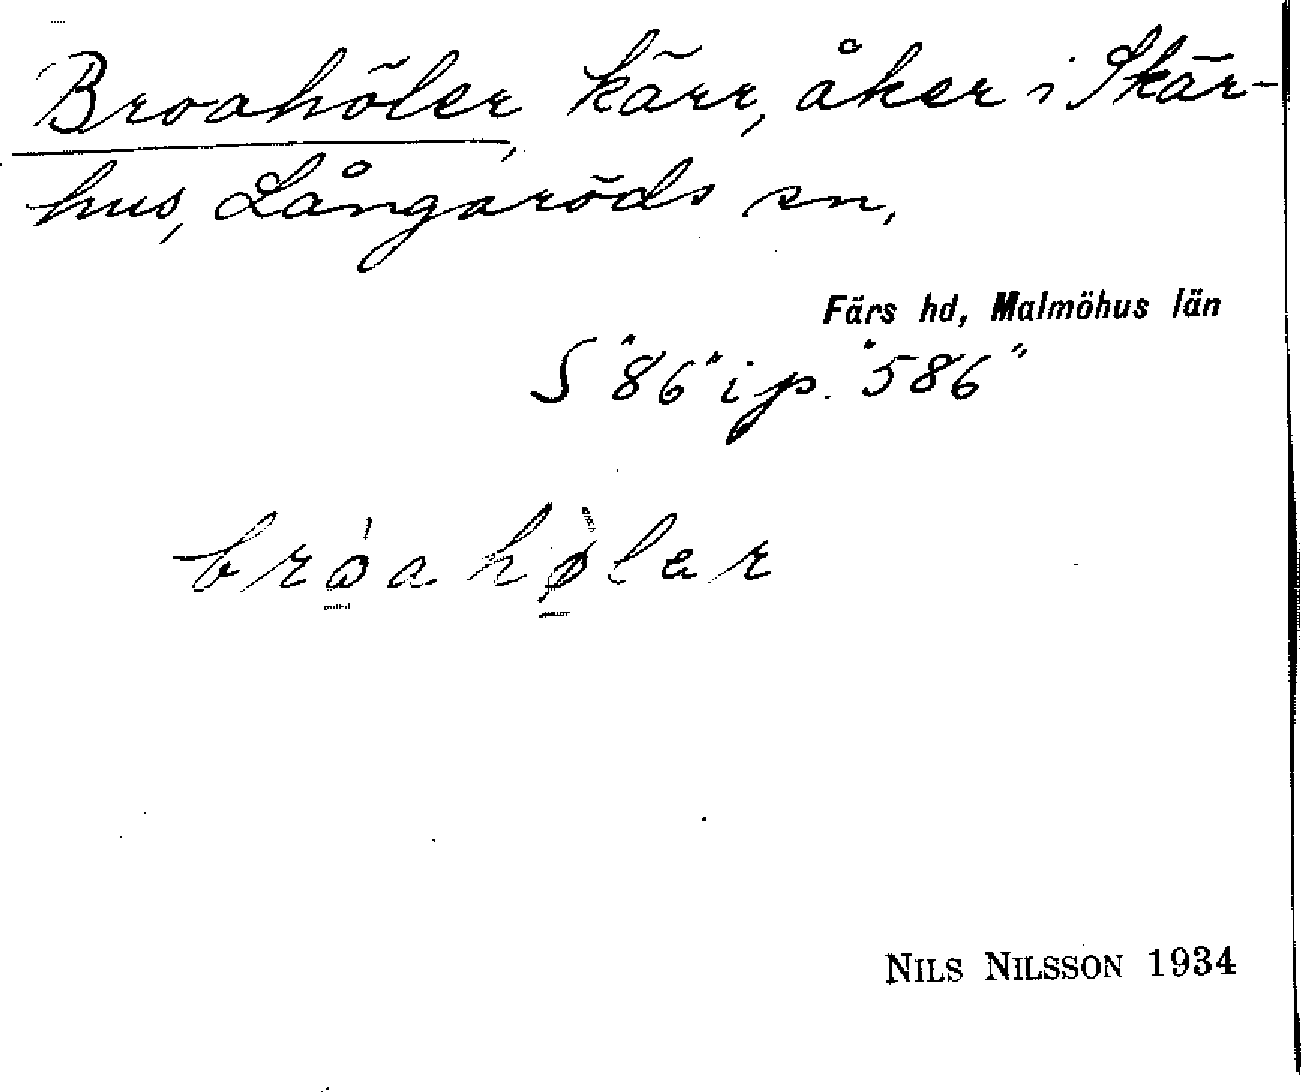 Broahöler, kärr, åker i Skär-
hus, Långaröds sn,
Färs hd, Malmöhus län
S "86" i p. "586"
bróahø̀lar
NILS NILSSON 1934